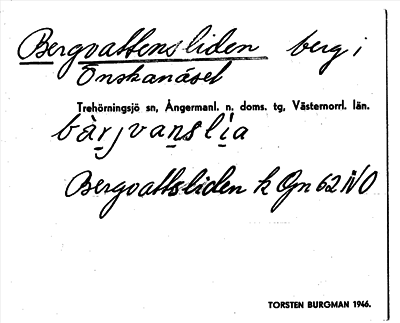 Bergvattensliden berg i
Önskanäset
Trehörningsjö sn, Ångermanl. n. doms. tg, Västernorrl. län.
bàrjvanslia
Bergvattsliden k Gn 62 NO
TORSTEN BURGMAN 1946.